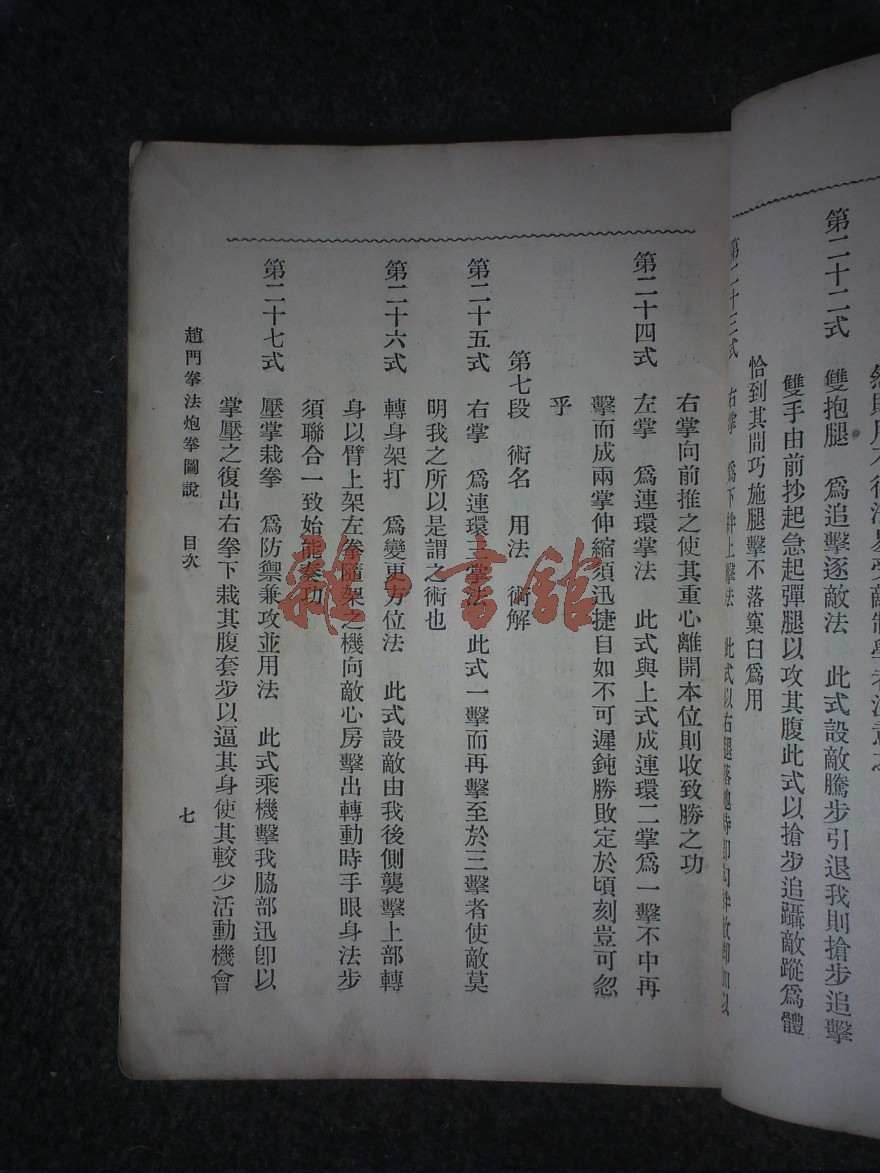 第二十二式　雙抱腿　爲追擊逐敵法　此式設敵騰步引退我則搶步追擊
雙手由前抄起急起彈腿以攻其腹此式以搶步追躡敵蹤爲體
恰到其間巧施腿擊不落窠臼爲用
第二十三式　右掌　爲下絆上擊法　此式以右腿落地時即勾絆敵脚
右掌向前推之使其重心離開本位則收致勝之功
第二十四式　左掌　爲連環掌法　此式與上式成連環二掌爲一擊不中再
擊而成兩掌伸縮須迅捷自如不可遲鈍勝敗定於頃刻豈可忽
乎
第七段　術名　用法　術解
第二十五式　右掌　爲連環三掌法　此式一擊而再擊至於三擊者使敵莫
明我之所以是謂之術也
第二十六式　轉身架打　爲變更方位法　此式設敵由我後側襲擊上部轉
身以臂上架左拳隨架之機向敵心房擊出轉動時手眼身法步
須聯合一致始能奏功
第二十七式　壓掌栽拳　爲防禦兼攻並用法　此式乘機擊我脇部迅卽以
掌壓之復出右拳下栽其腹套步以逼其身使其較少活動機會
趙門拳法炮拳圖說　目次
七
雜·書館